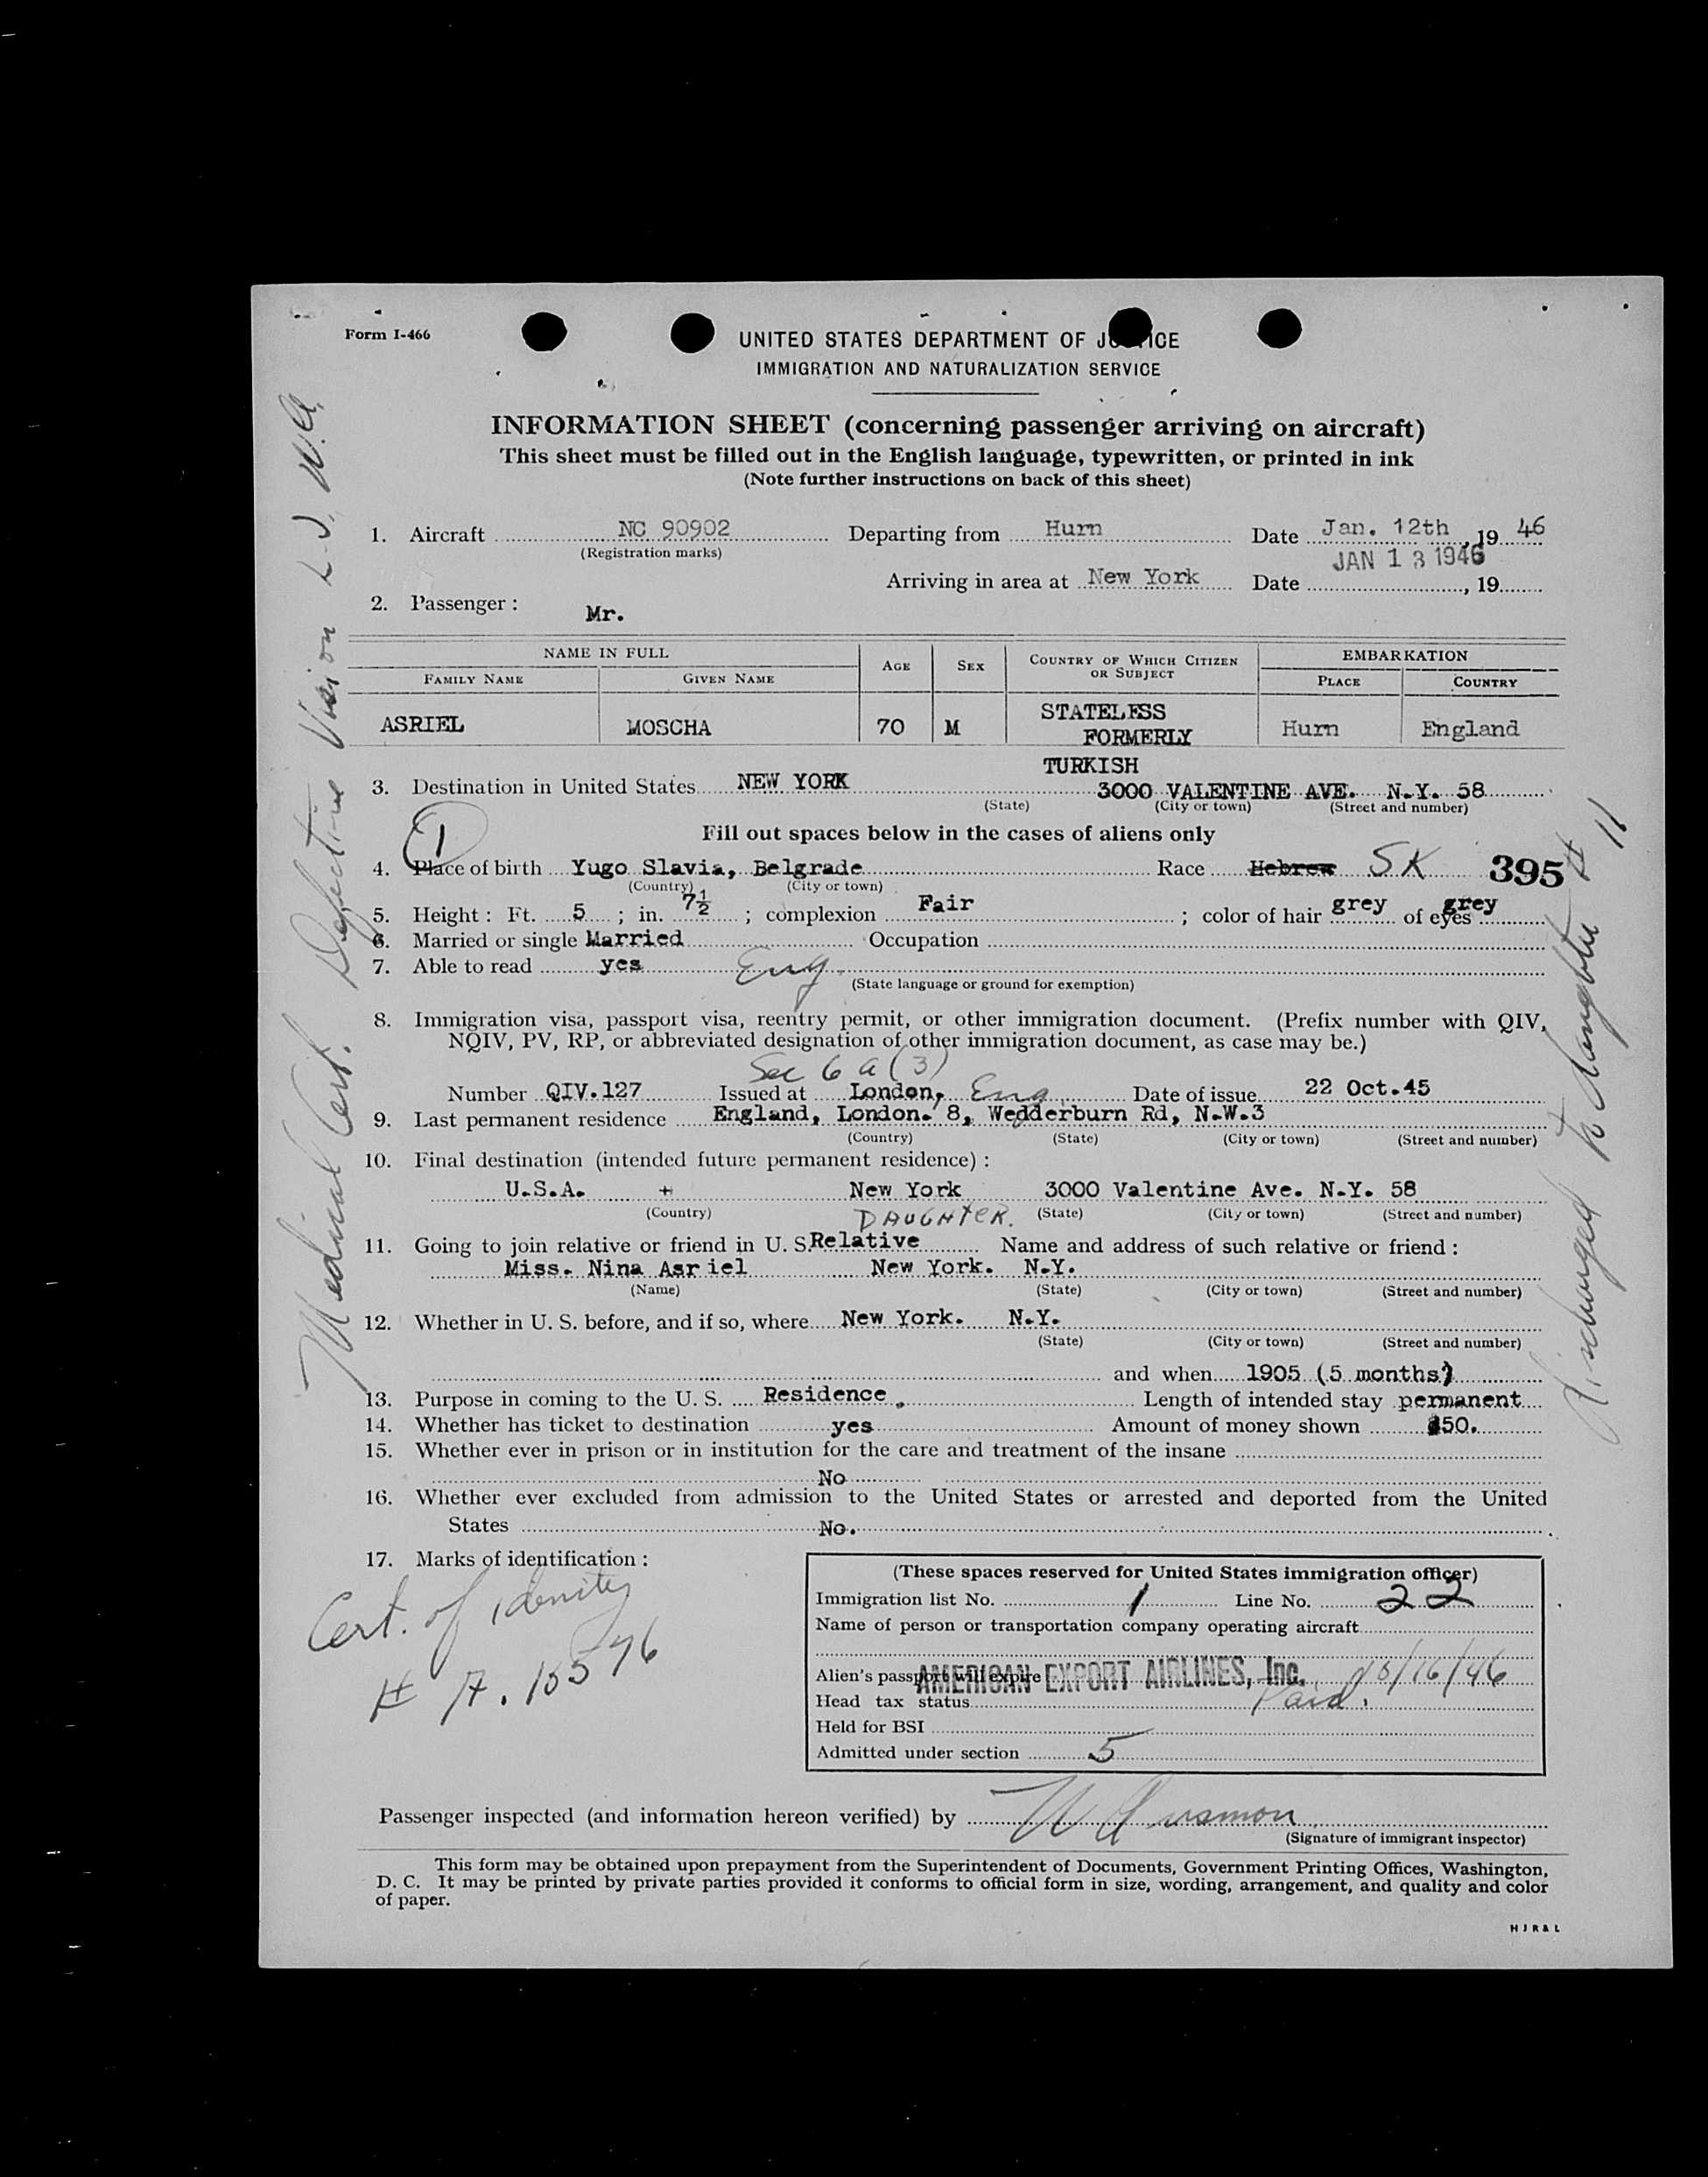 Form I-466
UNITED STATES DEPARTMENT OF JUSTICE
IMMIGRATION AND NATURALIZATION SERVICE
INFORMATION SHEET (concerning passenger arriving on aircraft)
This sheet must be filled out in the English language, typewritten, or printed in ink
(Note further instructions on back of this sheet)
1. Aircraft NC 90902 Departing from Hurn Date Jan. 12th, 19 46
(Registration marks)
JAN 13 1946
Arriving in area at New York Date , 19
2. Passenger: Mr.
NAME IN FULL AGE SEX COUNTRY OF WHICH CITIZEN OR SUBJECT EMBARKATION
FAMILY NAME GIVEN NAME PLACE COUNTRY
ASRIEL MOSCHA 70 M STATELESS FORMERLY TURKISH Hurn England
3. Destination in United States NEW YORK 3000 VALENTINE AVE. N.Y. 58
(State) (City or town) (Street and number)
1
Fill out spaces below in the cases of aliens only
4. Place of birth Yugo Slavia, Belgrade Race Hebrew SK 395
(Country) (City or town)
5. Height: Ft. 5; in. 7½; complexion Fair; color of hair grey of eyes grey
6. Married or single Married Occupation
7. Able to read yes Eng.
(State language or ground for exemption)
8. Immigration visa, passport visa, reentry permit, or other immigration document. (Prefix number with QIV,
NQIV, PV, RP, or abbreviated designation of other immigration document, as case may be.)
Sec 6 a (3)
Number QIV.127 Issued at London, Eng. Date of issue 22 Oct.45
9. Last permanent residence England, London. 8, Wedderburn Rd, N.W.3
(Country) (State) (City or town) (Street and number)
10. Final destination (intended future permanent residence):
U.S.A. + New York 3000 Valentine Ave. N.Y. 58
(Country) (State) (City or town) (Street and number)
DAUGHTER.
11. Going to join relative or friend in U. S. Relative Name and address of such relative or friend:
Miss. Nina Asriel New York. N.Y.
(Name) (State) (City or town) (Street and number)
12. Whether in U. S. before, and if so, where New York. N.Y.
(State) (City or town) (Street and number)
and when 1905 (5 months)
13. Purpose in coming to the U. S. Residence. Length of intended stay permanent
14. Whether has ticket to destination yes Amount of money shown $50.
15. Whether ever in prison or in institution for the care and treatment of the insane
No
16. Whether ever excluded from admission to the United States or arrested and deported from the United
States No.
17. Marks of identification:
Cert. of Idenity
# A.
(These spaces reserved for United States immigration officer)
Immigration list No. 1 Line No. 22
Name of person or transportation company operating aircraft
AMERICAN EXPORT AIRLINES, Inc.
Alien's passport will expire 10/16/46
Head tax status Paid.
Held for BSI
Admitted under section 5
Passenger inspected (and information hereon verified) by
(Signature of immigrant inspector)
This form may be obtained upon prepayment from the Superintendent of Documents, Government Printing Offices, Washington,
D. C. It may be printed by private parties provided it conforms to official form in size, wording, arrangement, and quality and color
of paper.
H J R & L
Medical Cert. Defective Vision
Discharged to daughter # 11